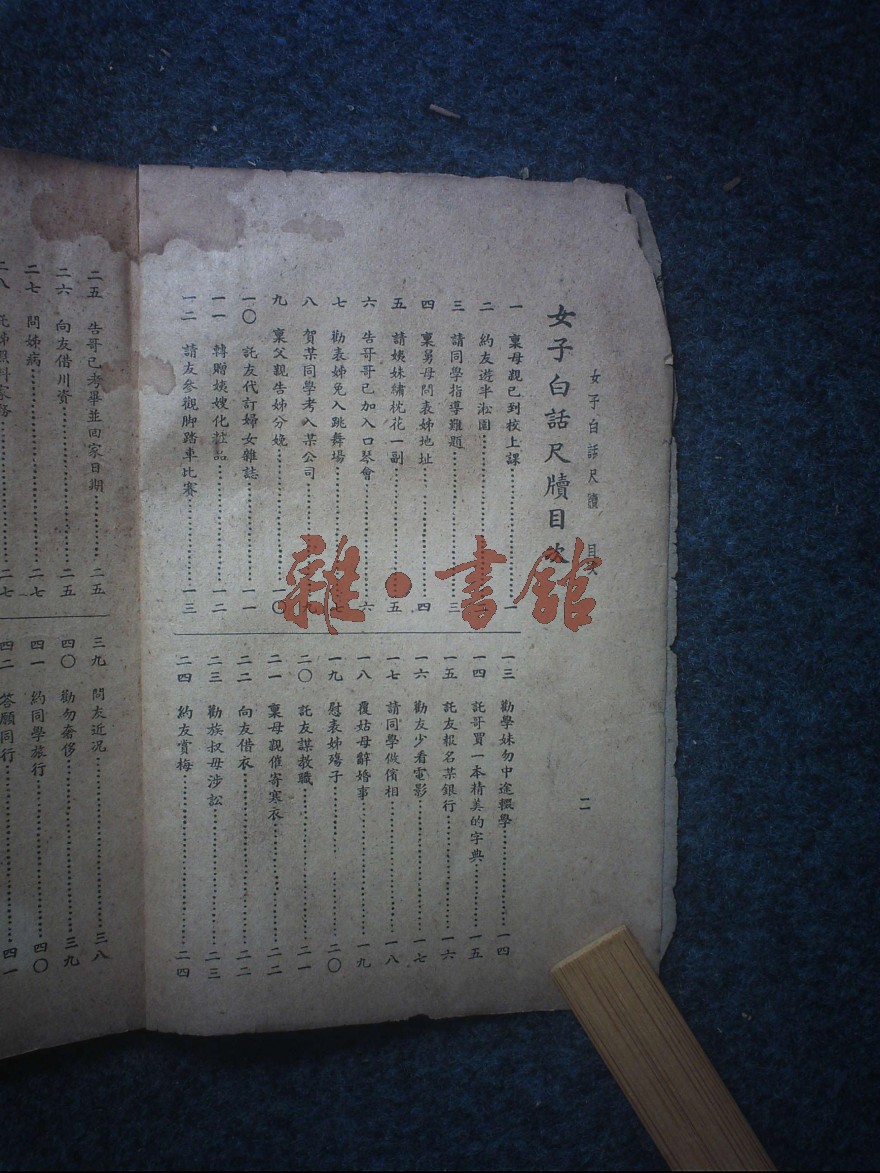 女子白話尺牘 目次
二
女子白話尺牘目次
一 稟母親已到校上課 一
二 約友遊半淞園
三 請同學指導難題 三
四 稟舅母問表姊地址 四
五 請姨妹繡枕花一副 五
六 告哥哥已加入口琴會 六
七 勸表姊免入跳舞場 七
八 賀某同學考入某公司
九 稟父親告姊分娩 一〇
一〇 託友代訂婦女雜誌
一一 轉贈姨嫂化粧品 一二
一二 請友參觀脚踏車比賽 一三
一三 勸學妹勿中途輟學 一四
一四 託哥買一本精美的字典 一五
一五 託友報名某銀行 一六
一六 勸友少看電影 一七
一七 請同學做儐相 一八
一八 覆姑母辭婚事 一九
一九 慰表姊殤子 二〇
二〇 託友謀教職 二一
二一 稟母親催寄寒衣 二二
二二 向友借衣 二二
二三 勸族叔母涉訟 二三
二四 約友賞梅 二四
二五 告哥已考畢並回家日期 二五
二六 向友借川資 二五
二七 問姊病 二七
二八 託姊照料家務 二七
三九 問友近况 三八
四〇 勸勿奢侈 三九
四一 約同學旅行 四〇
四二 答願同行 四一
雜·書館